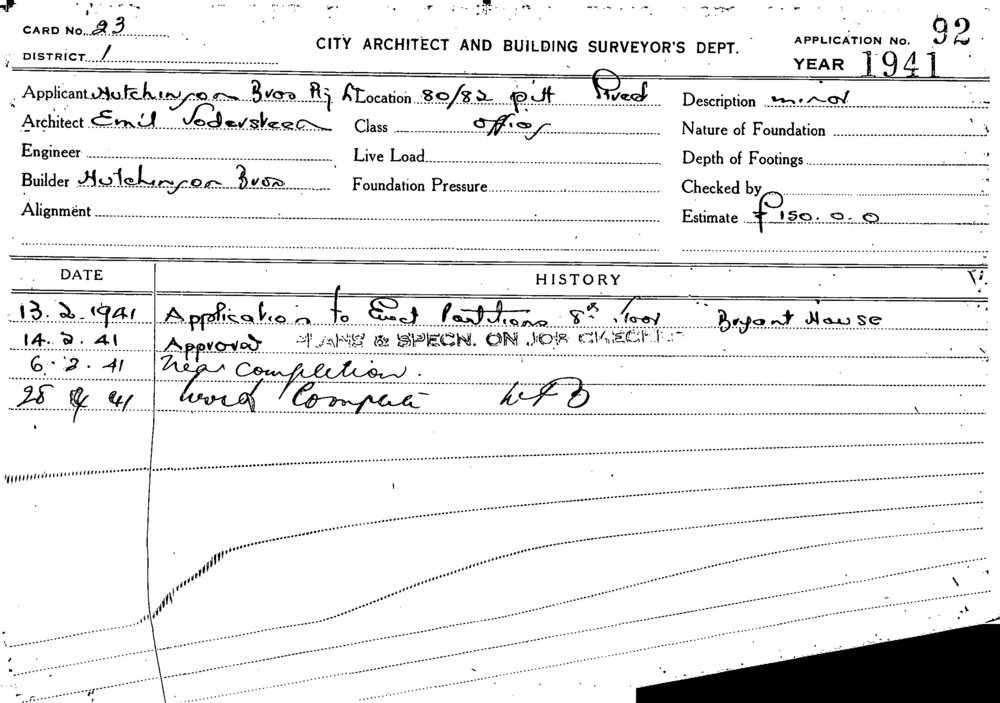 CARD No. 23
DISTRICT 1
CITY ARCHITECT AND BUILDING SURVEYOR'S DEPT.
APPLICATION No. 92
YEAR 1941
Applicant Hutchinson Bros Pty L Location 80/82 pitt Street Description minor
Architect Emil Sodersteen Class offices Nature of Foundation
Engineer Live Load Depth of Footings
Builder Hutchinson Bros Foundation Pressure Checked by
Alignment Estimate £150.0.0
DATE HISTORY
13.2.1941 Application to Erect Partitions 8th floor Bryant House
14.2.41 Approved PLANS & SPECN. ON JOB CHECKED
6.3.41 Near completion.
28 4 41 Work Complete